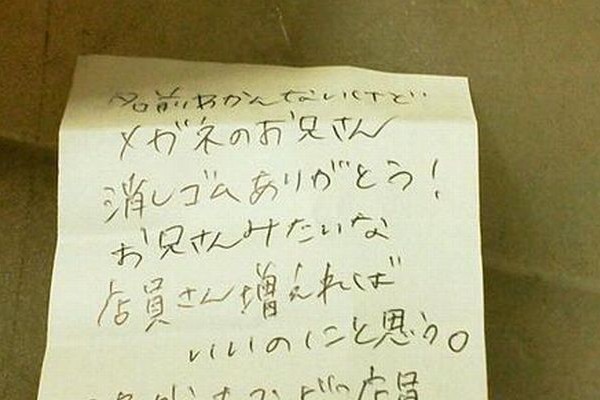 名前わかんないけど
メガネのお兄さん
消しゴムありがとう!
お兄さんみたいな
店員さん増えれば
いいのにと思う。
店員